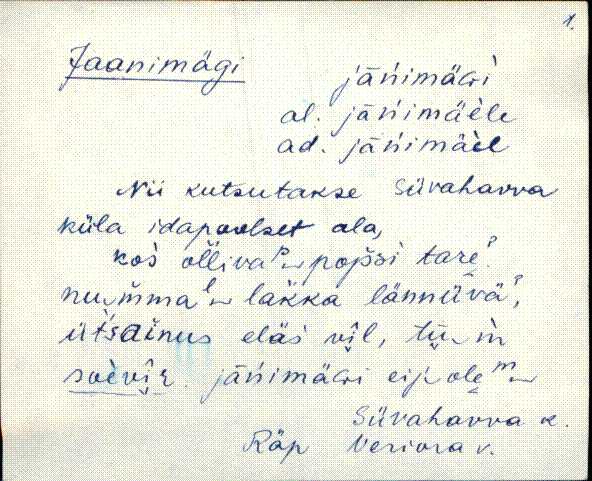 1.
Jaanimägi
jāńimäGi
al. jāńimäèle
ad. jāńimäèl
Nii kutsutakse Süvahavva
küla idapoolset ala,
koś olliva popsi tare?
nu mma lakka lännüvä?,
ütsainus eläs vil, tū in
soèvir. jāńimäGi eip ole m
Süvahavva k.
Räp Veriora v.